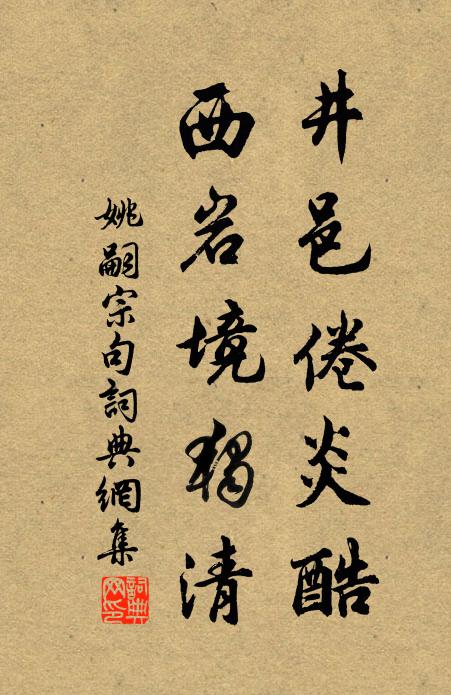 井邑倦炎酷
西岩境獨清
姚嗣宗句詞典網集
詞典
网印